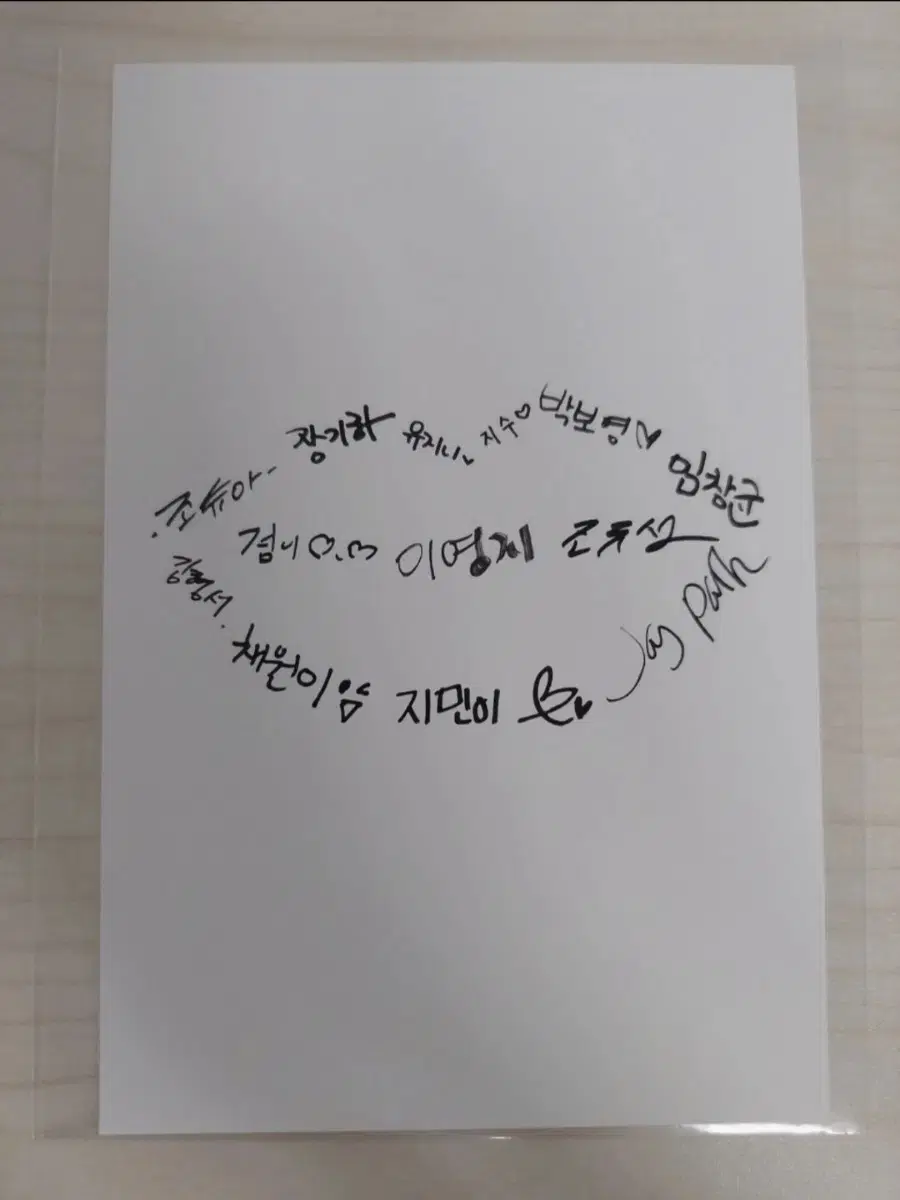 장기하
유지니
지수♡
박보영♡
임창균
조유아
겸니♡.♡
이영지
조규성
김형서
채원이얌
지민이
Jay park